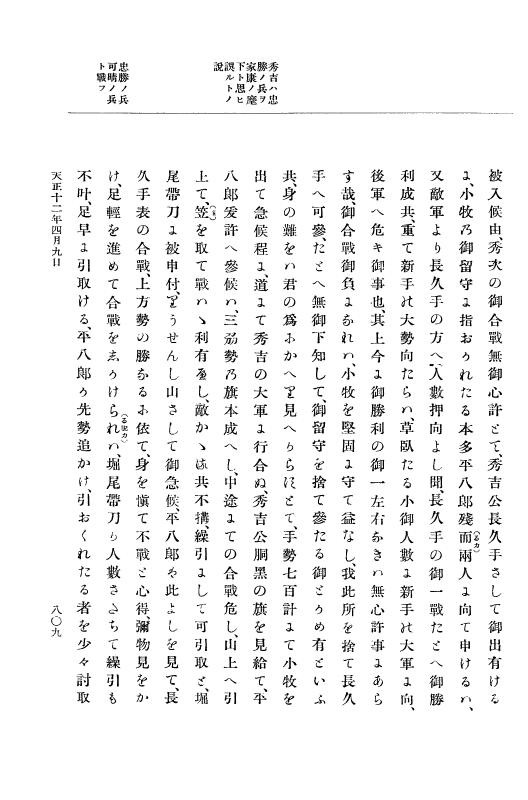 秀吉ハ忠
勝ノ兵ヲ
家康ノ麾
下ト思ヒ
誤ルトノ
説
忠勝ノ兵
可晴ノ兵
ト戰フ
被入候由、秀次の御合戰無御心許とて、秀吉公長久手さして御出有ける
よ、小牧乃御留守よ指おかれたる本多平八郎殘而兩人よ向て申けるハ、
(るカ)
又敵軍より長久手の方へ人數押向よし聞、長久手の御一戰たとへ御勝
利成共、重て新手れ大勢向たらハ、草臥たる小御人數よ新手れ大軍よ向、
後軍へ危キ御事也、其上今よ御勝利の御一左右なきハ無心許事よあら
す哉、御合戰御負よなれハ、小牧を堅固よ守て益なし、我此所を捨て長久
手へ可參、たとへ無御下知して、御留守を捨て參たる御とかめ有といふ
共、身の難をハ君の爲ふかへを見へからにとて、手勢七百計よて小牧を
出て急候程よ、道よて秀吉の大軍よ行合ぬ、秀吉公胴黑の旗を見給て、平
八郎爰許へ參候ハ、三苅勢乃旗本成へし、中途よての合戰危し、山上へ引
上て、笠を取て戰ハヽ利有へし、敵かヽは共不搆、繰引よして可引取と、堀
尾帶刀よ被申付、をうせんし山さして御急候、平八郎を此よしを見て、長
久手表の合戰、上方勢の勝なるふ依て、身を愼て不戰と心得、彌物見をか
け、足輕を進めて合戰をしかけられハ、堀尾帶刀か人數さヽちて繰引も
不叶、足早よ引取ける、平八郎か先勢追かけ、引おくれたる者を少々討取
天正十二年四月九日
八〇九